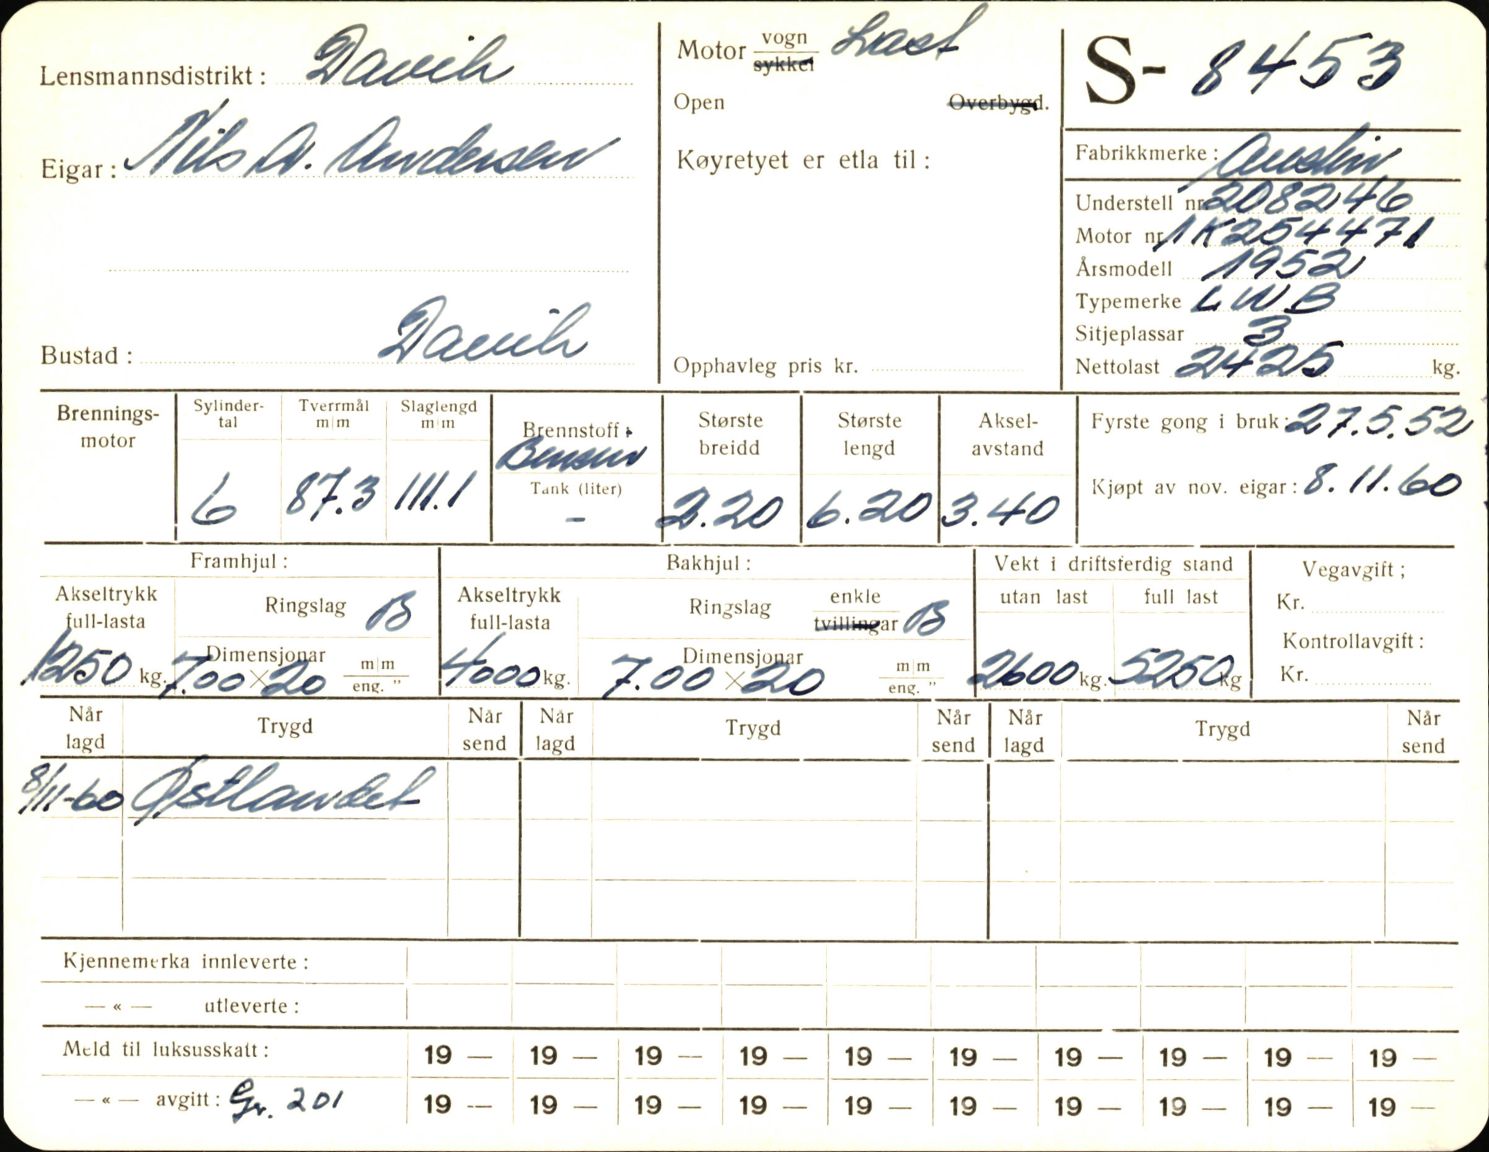 Lensmannsdistrikt: Davik
Eigar: Nils A. Andersen
Bustad: Davik
Motor vogn sykkel Last
Open Overbygd.
Køyretyet er etla til:
Opphavleg pris kr.
S- 8453
Fabrikkmerke: Austin
Understell nr. 2082246
Motor nr. 1K254471
Årsmodell 1952
Typemerke LWB
Sitjeplassar 3
Nettolast 2425 kg.
Brennings-motor
Sylinder-tal 6
Tverrmål m|m 87.3
Slaglengd m|m 111.1
Brennstoff: Bensin
Tank (liter) -
Største breidd 2.20
Største lengd 6.20
Aksel-avstand 3.40
Fyrste gong i bruk: 27.5.52
Kjøpt av nov. eigar: 8.11.60
Framhjul:
Akseltrykk full-lasta 1250 kg.
Ringslag B
Dimensjonar 7.00 × 20 m|m eng. "
Bakhjul:
Akseltrykk full-lasta 4000 kg.
Ringslag enkle tvillingar B
Dimensjonar 7.00 × 20 m|m eng. "
Vekt i driftsferdig stand
utan last 2600 kg.
full last 5250 kg
Vegavgift;
Kr.
Kontrollavgift:
Kr.
Når lagd Trygd Når send Når lagd Trygd Når send Når lagd Trygd Når send
8/11-60 Østlandet
Kjennemerka innleverte:
— « — utleverte:
Meld til luksusskatt: 19 — 19 — 19 — 19 — 19 — 19 — 19 — 19 — 19 — 19 —
— « — avgitt: Gr. 201 19 — 19 — 19 — 19 — 19 — 19 — 19 — 19 — 19 — 19 —